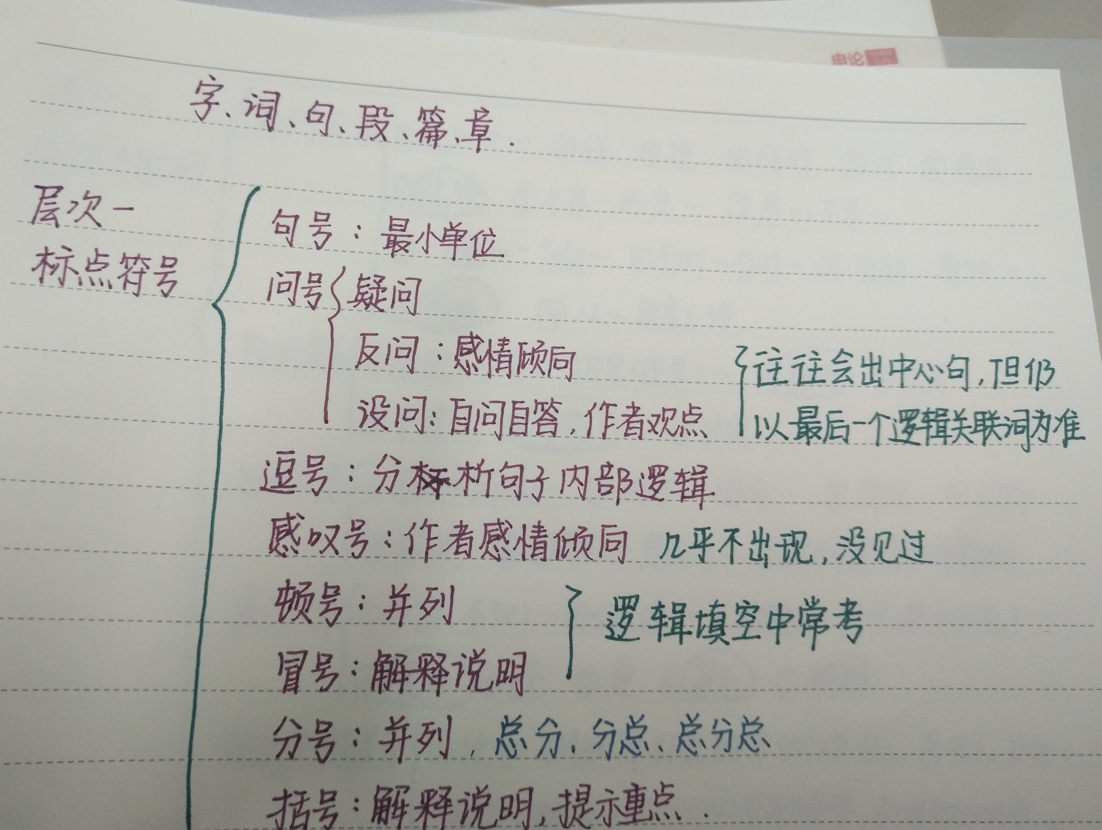 申论
字、词、句、段、篇、章.
层次一
标点符号
句号：最小单位
问号 疑问
反问：感情倾向
设问：自问自答,作者观点
往往会出中心句,但仍
以最后一个逻辑关联词为准
逗号：分析句子内部逻辑
感叹号：作者感情倾向 几乎不出现,没见过
顿号：并列
冒号：解释说明
逻辑填空中常考
分号：并列,总分、分总、总分总
括号：解释说明,提示重点.